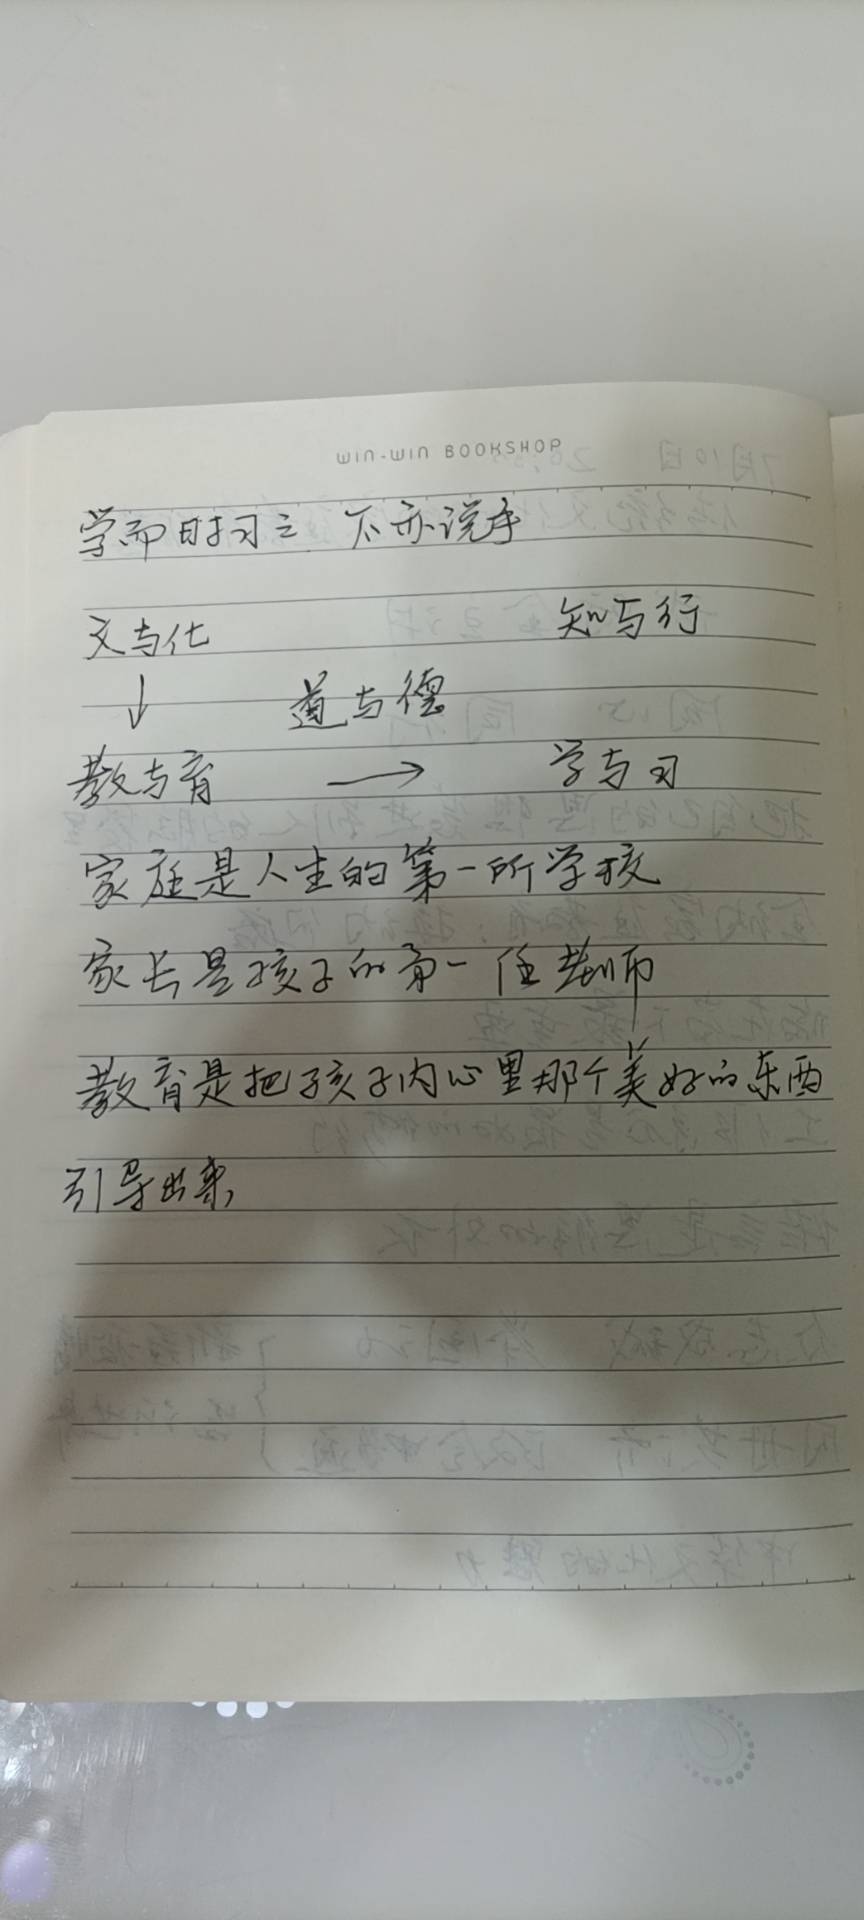 WIN-WIN BOOKSHOP
学而时习之 不亦说乎
文与化 知与行
↓ 道与德
教与育 → 学与习
家庭是人生的第一所学校
家长是孩子的第一任老师
教育是把孩子内心里那个美好的东西
引导出来